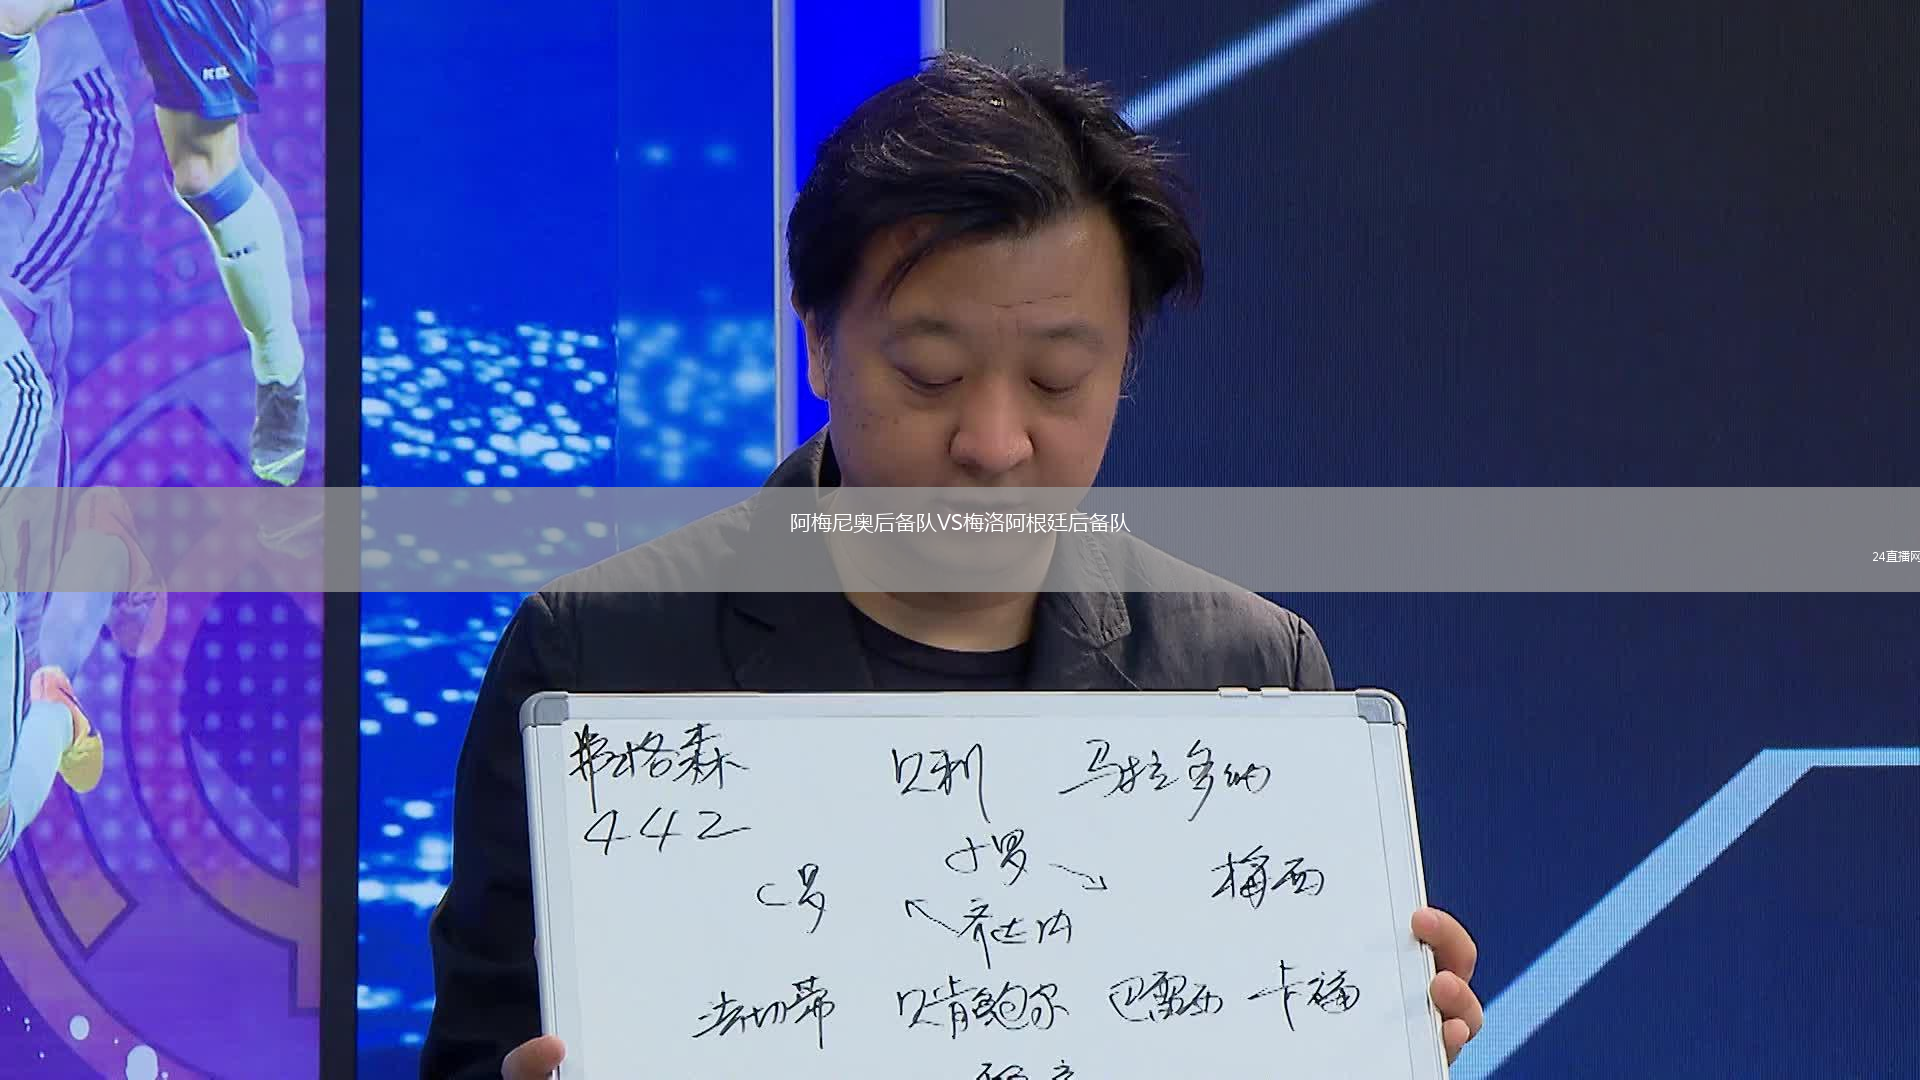 KEL
阿梅尼奥后备队VS梅洛阿根廷后备队
24直播网
弗格森 贝利 马拉多纳
442
小罗
C罗 梅西
齐达内
法切蒂 贝肯鲍尔 巴雷西 卡福